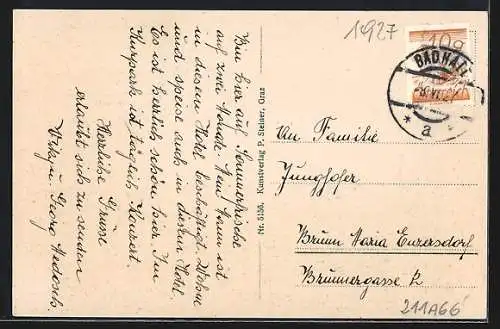 1927
10g
BAD HALL
a
Bin hier auf Sommerfrische
auf zwei Monate. Mein Mann ist
in diesem Hotel beschäftigt. Wohne
und speise auch in diesem Hotel.
Es ist herrlich schön hier. Im
Kurpark ist täglich Konzert.
Herzliche Grüsse
erlaubt sich zu senden
Georg
Nr. 5150. Kunstverlag P. Steiner, Graz
An Familie
Junghofer
Brunn Maria Enzersdorf
Brunnergasse 2
211A66